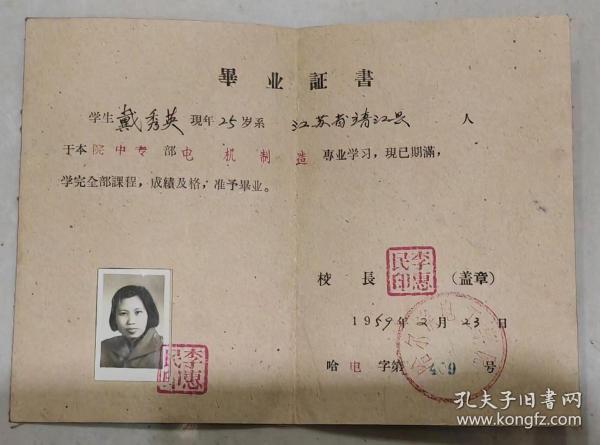 畢业証書
学生 戴秀英 現年25岁系 江苏省靖江县 人
于本院中专部电机制造專业学习，現已期滿，
学完全部課程，成績及格，准予畢业。
校長 李惠民印 (盖章)
1959年2月23日
哈电字第409号
李惠民印
孔夫子旧书网
www.kongfz.com